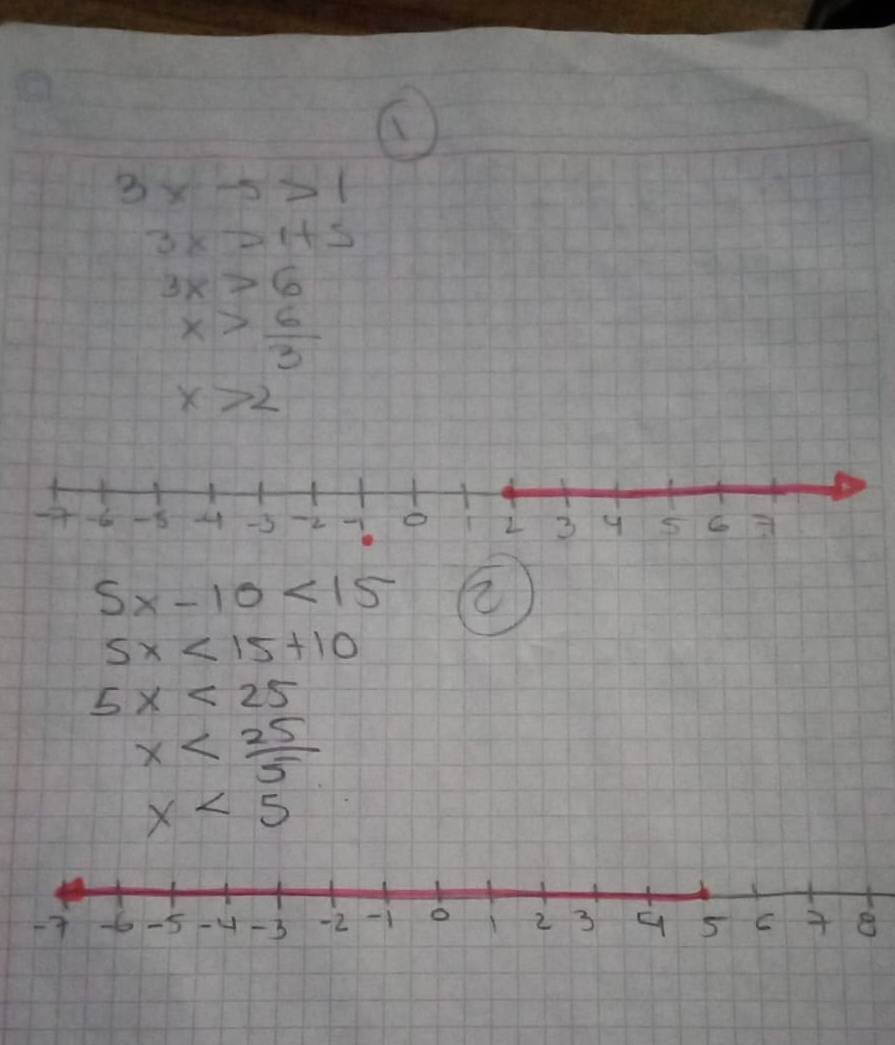 1
3x - 5 > 1
3x > 1+5
3x > 6
x > 6/3
x > 2
-7 -6 -5 -4 -3 -2 -1 0 1 2 3 4 5 6 7
5x - 10 < 15 2
5x < 15+10
5x < 25
x < 25/5
x < 5
-7 -6 -5 -4 -3 -2 -1 0 1 2 3 4 5 6 7 8